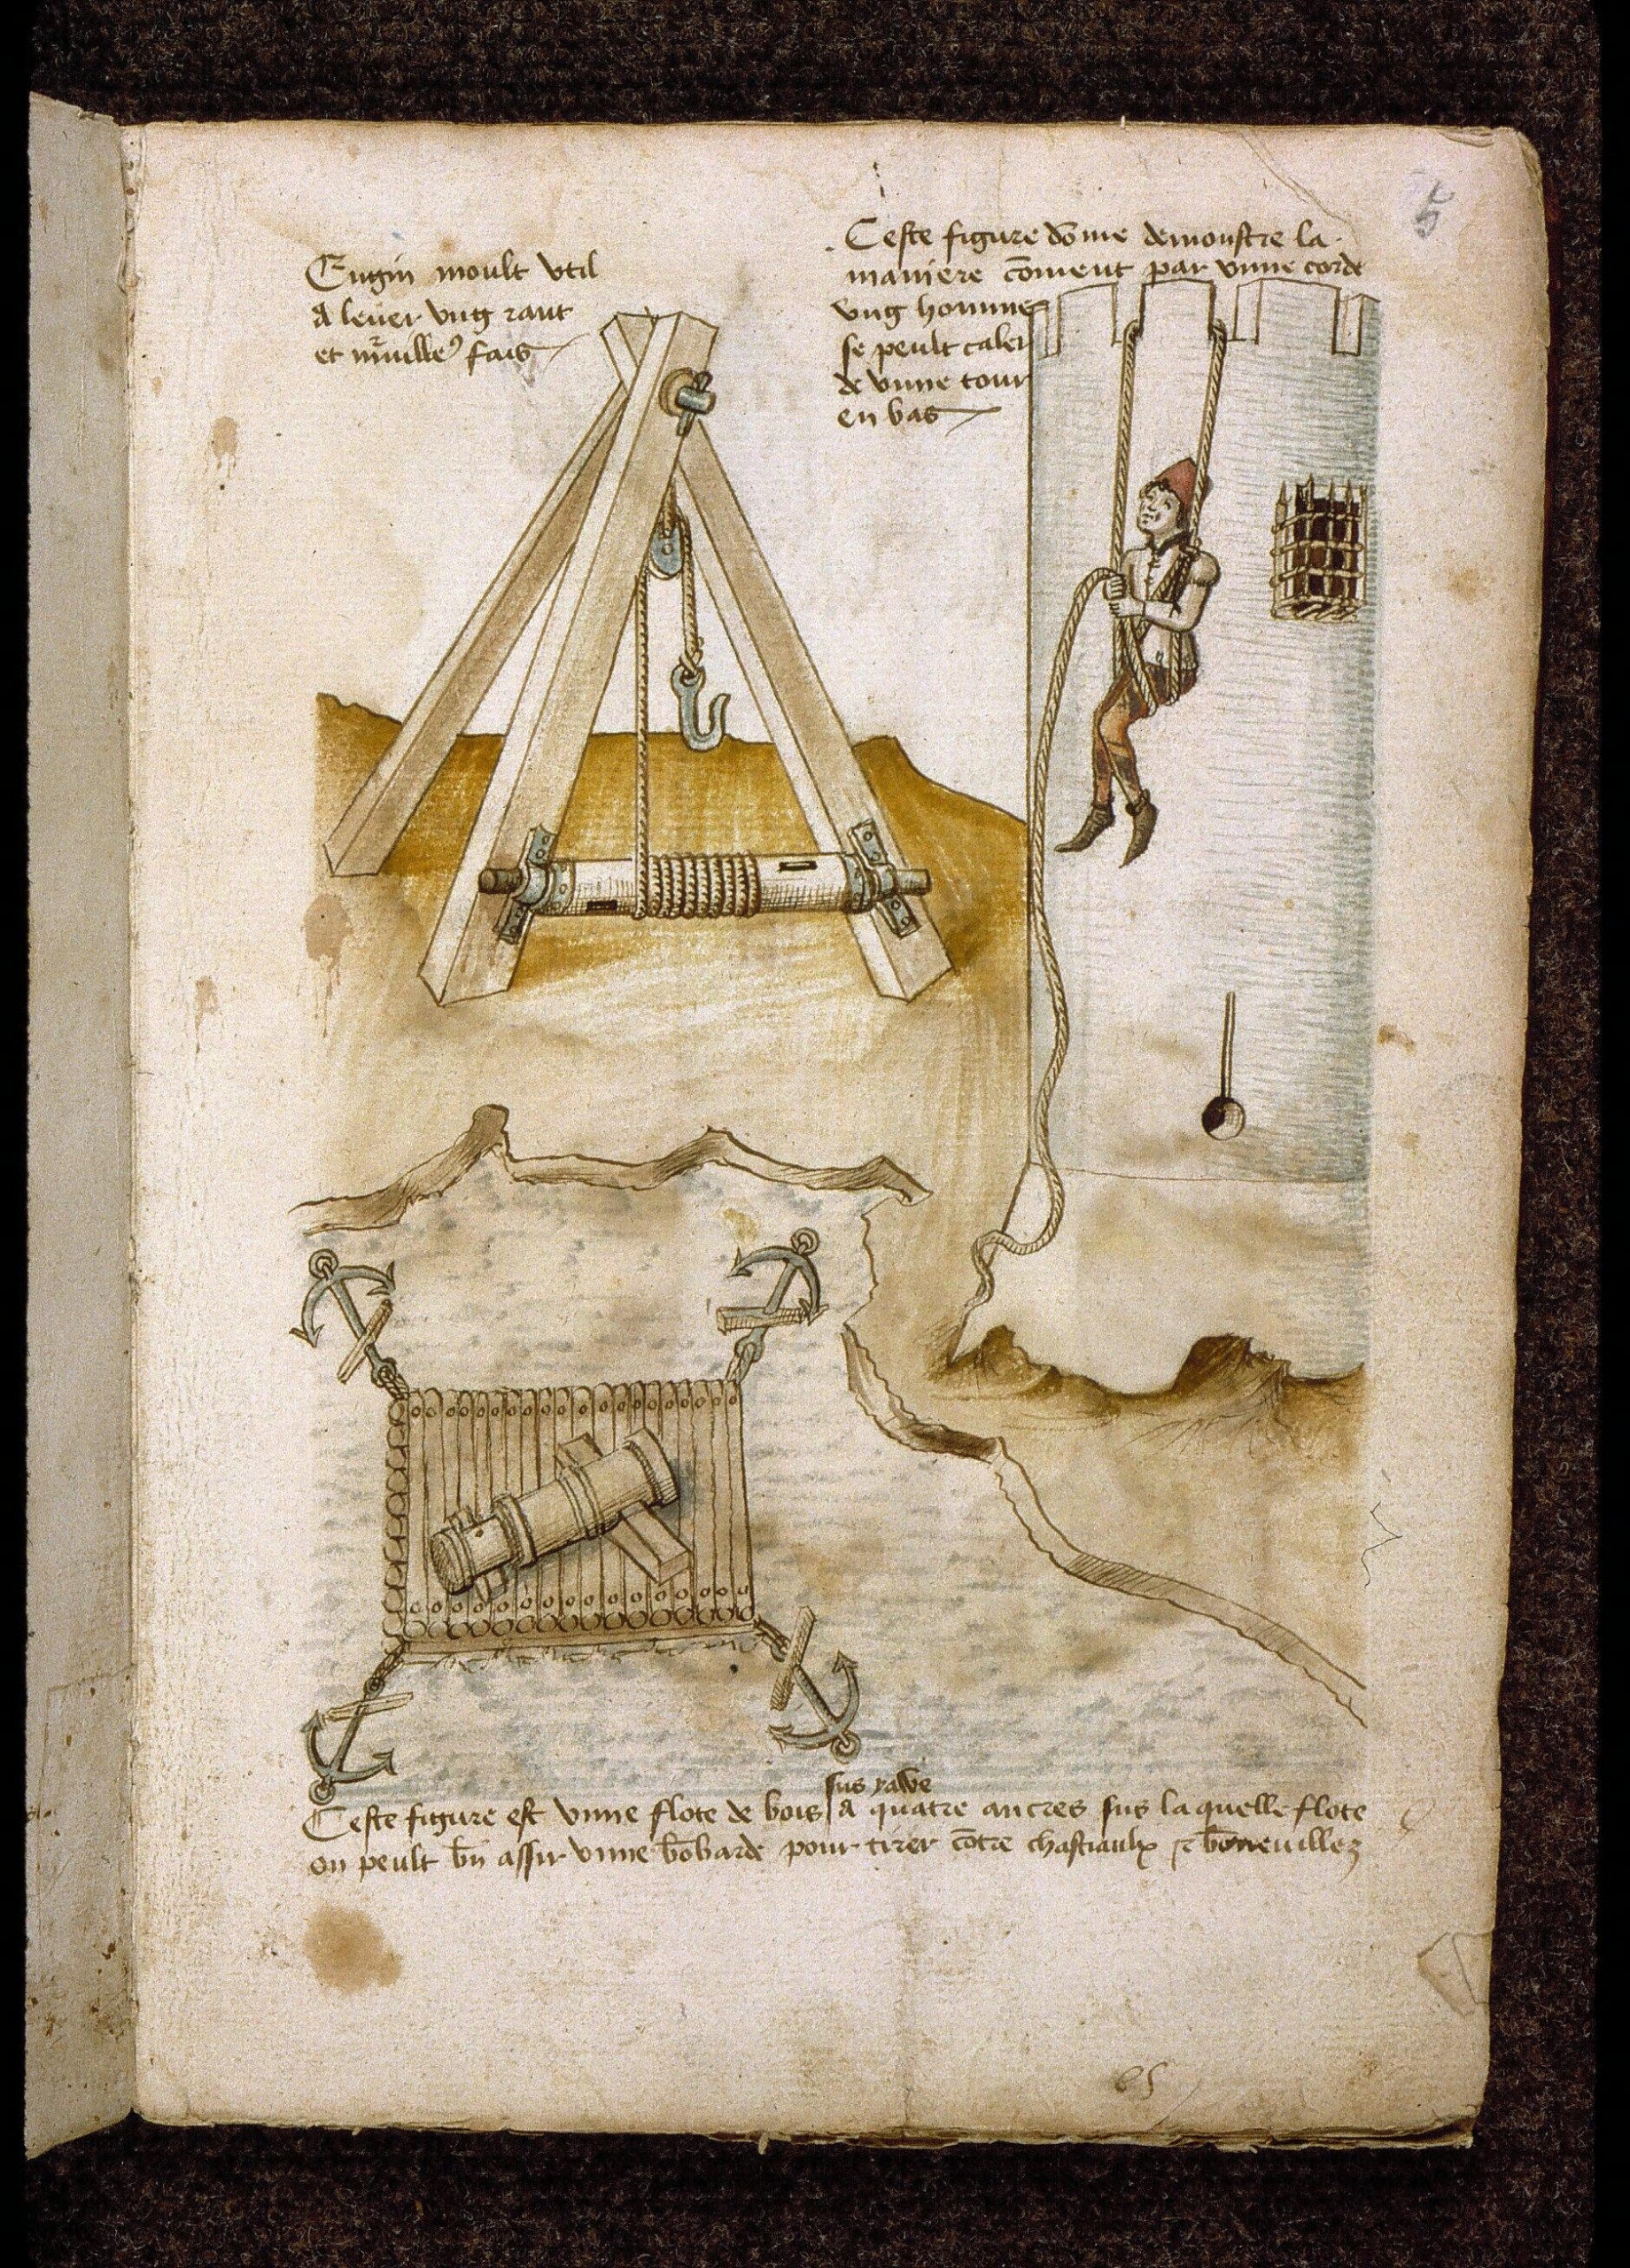 Engin moult vtil
a leuer vng rant
et m̃uille9 fais
Ceste figure dõnne demonstre la
maniere cõment par vnne corde
vng homme
se peult caler
de vnne tour
en bas
5
sus yawe
Ceste figure est vnne flote de bois a quatre ancres sus laquelle flote
on peult bñ assir vnne bõbarde pour tirer cõtre chastiaulx